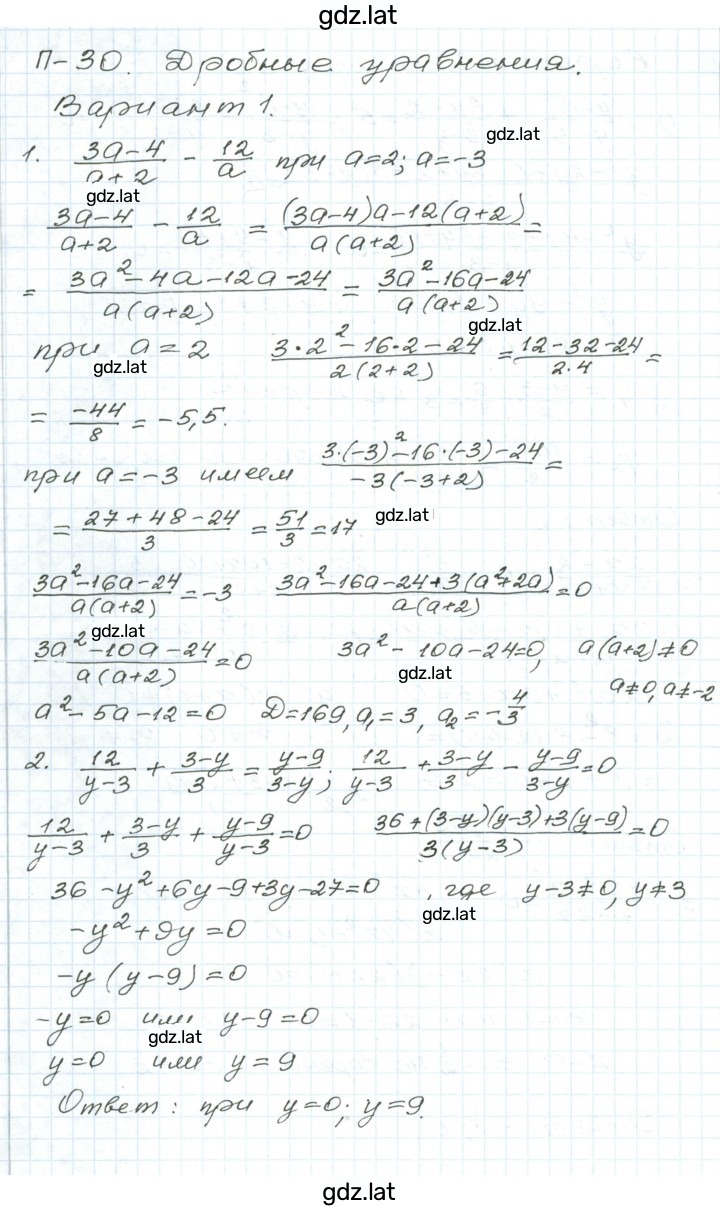 gdz.lat
П-30. Дробные уравнения.
Вариант 1.
gdz.lat
1. (3a-4)/(a+2) - 12/a при a=2; a=-3
gdz.lat
(3a-4)/(a+2) - 12/a = ((3a-4)a-12(a+2))/(a(a+2)) =
= (3a²-4a-12a-24)/(a(a+2)) = (3a²-16a-24)/(a(a+2))
gdz.lat
при a=2 (3·2²-16·2-24)/(2(2+2)) = (12-32-24)/(2·4) =
gdz.lat
= -44/8 = -5,5.
при a=-3 имеем (3·(-3)²-16·(-3)-24)/(-3(-3+2)) =
= (27+48-24)/3 = 51/3 = 17
gdz.lat
(3a²-16a-24)/(a(a+2)) = -3 (3a²-16a-24+3(a²+2a))/(a(a+2)) = 0
gdz.lat
(3a²-10a-24)/(a(a+2)) = 0 3a²-10a-24=0, a(a+2)≠0
gdz.lat
a≠0, a≠-2
a²-5a-12=0 D=169, a₁=3, a₂=-4/3
2. 12/(y-3) + (3-y)/3 = (y-9)/(3-y); 12/(y-3) + (3-y)/3 - (y-9)/(3-y) = 0
12/(y-3) + (3-y)/3 + (y-9)/(y-3) = 0 (36+(3-y)(y-3)+3(y-9))/(3(y-3)) = 0
36-y²+6y-9+3y-27=0, где y-3≠0, y≠3
gdz.lat
-y²+9y=0
-y(y-9)=0
-y=0 или y-9=0
gdz.lat
y=0 или y=9
Ответ: при y=0; y=9.
gdz.lat